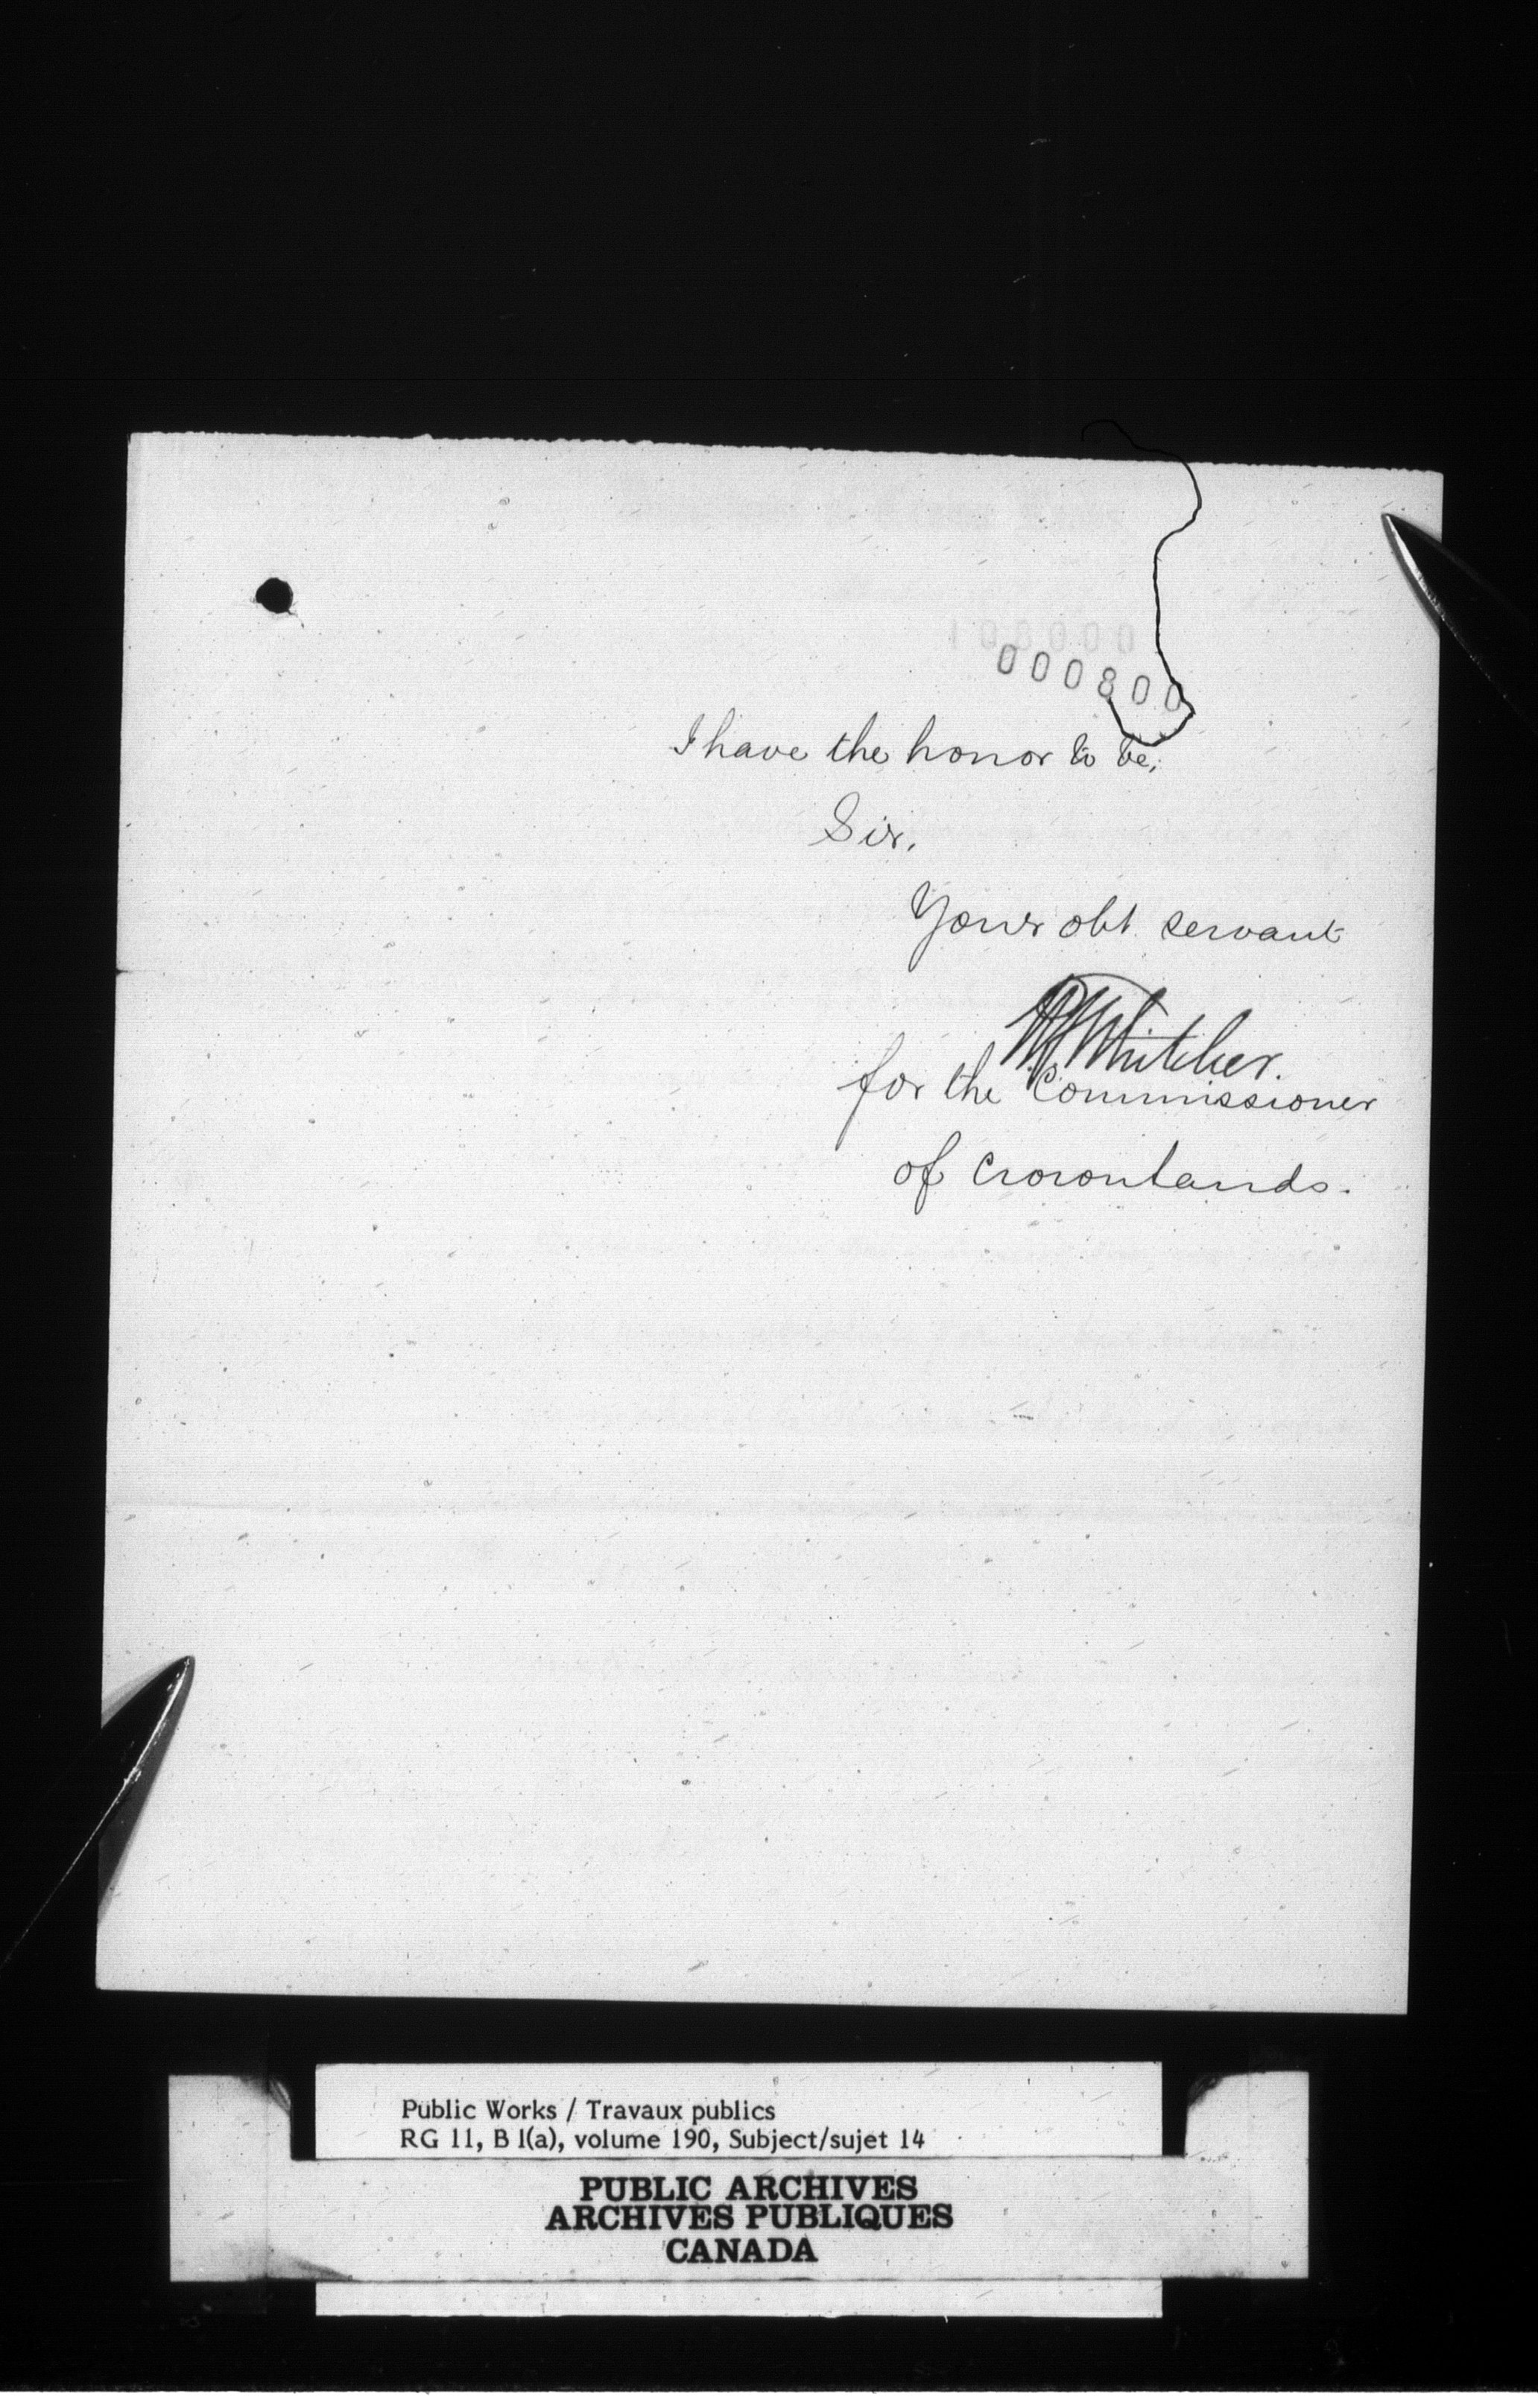 000800
I have the honor to be,
Sir,
Your obt servant
Whitcher.
for the Commissioner
of Crown lands.
Public Works / Travaux publics
RG 11, B 1(a), volume 190, Subject/sujet 14
PUBLIC ARCHIVES
ARCHIVES PUBLIQUES
CANADA